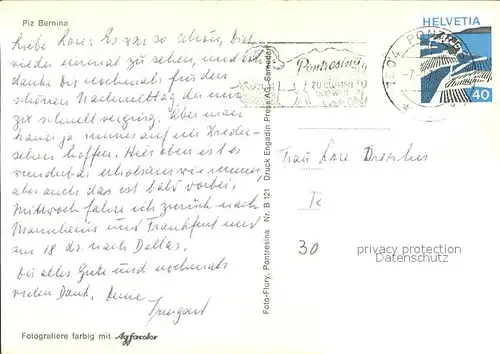 Piz Bernina
Liebe Lore; Es war so schön, Dich
wieder einmal zu sehen, und ich
danke Dir nochmals für den
schönen Nachmittag, der
zu schnell verging. Aber man
kann ja immer auf ein Wieder-
sehen hoffen. Hier oben ist es
wunderbar erholsam wie immer,
aber auch das ist bald vorbei.
Mittwoch fahre ich zurück nach
Mannheim und Frankfurt und
am 18 ds. nach Dallas.
Dir alles Gute und nochmals
vielen Dank. Deine
Irmgard
Fotografiere farbig mit Agfacolor
Foto-Flury, Pontresina Nr. B 121 Druck Engadin Press AG, Samedan
Pontresina
HELVETIA
40
7504 PONTRESINA
Frau Lore
30
privacy protection
Datenschutz